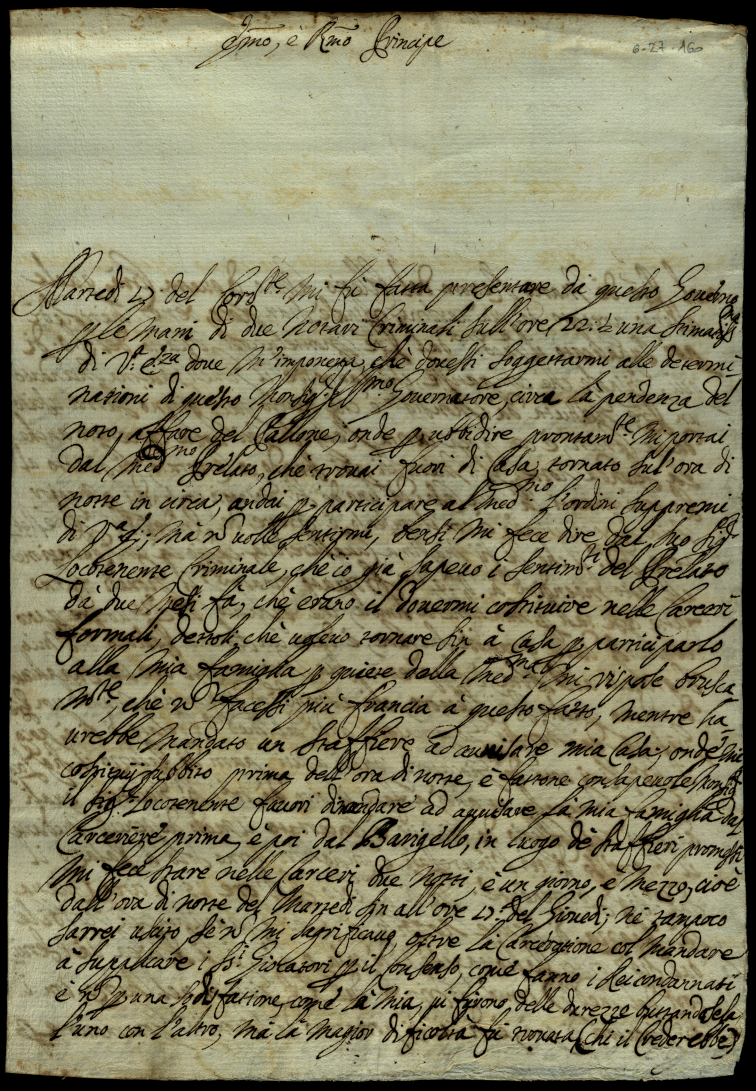 Em̃o, è Rm̃o Principe
6-27-160
Martedì 27 del Corr.te mi fù fatta presentare da questo Governo
p le mani di due Notari Criminali sull'ore 22: ½ una stimatis.ma
di V.a Em.za dove m'imponeva, chè dovessi soggettarmi alle determi
nationi di questo Monsig.r Ill.mo Governatore, circa la pendenza del
noto affare del Pallone; onde p ubbidire prontam.te mi portai
dal med.mo Prelato, chè trovai fuori di Casa; tornato sul'ora di
notte in circa, andai p participare al med.mo l'ordini supremi
di V.a E.; mà nõ volle sentirmi, bensì mi fece dire dal suo Sig.r
Locotenente Criminale, chè io già sapevo i sentim.ti del Prelato
dà due Mesi fà, chè erano il dovermi costituire nelle Carceri
formali, dettoli chè volevo tornare sin à Casa p participarlo
alla mia famiglia p quiete della med.ma mi rispose brusca
m.te, chè nõ facessi più francia à questo fatto, mentre ha
urebbe mandato un staffiere ad avvisare mia Casa; onde mi
costituij subbito prima dell'ora di notte, e fattone consapevole Monsig.r
il Sig.r Locotenente favorì di mandare ad avvisare la mia famiglia dal
Carceriere prima, è poi dal Barigello, in luogo dè staffieri promessi
mi fece stare nelle Carceri due notti, è un giorno, e mezzo, cioè
dall'ora di notte del Martedì sin all'ore 27: del Giovedì; nè tampoco
sarrei uscito sè nõ mi sagrificavo, oltre la Carceratione col mandare
à supplicare i SS.ri Giocatori p il consenso, come fanno i Rei condannati
è nõ p una sodisfatione, come la mia, vi furono delle durezze buttandosela
l'uno con l'altro, mà la magior dificoltà fù trovata (chi il Crederebbe)